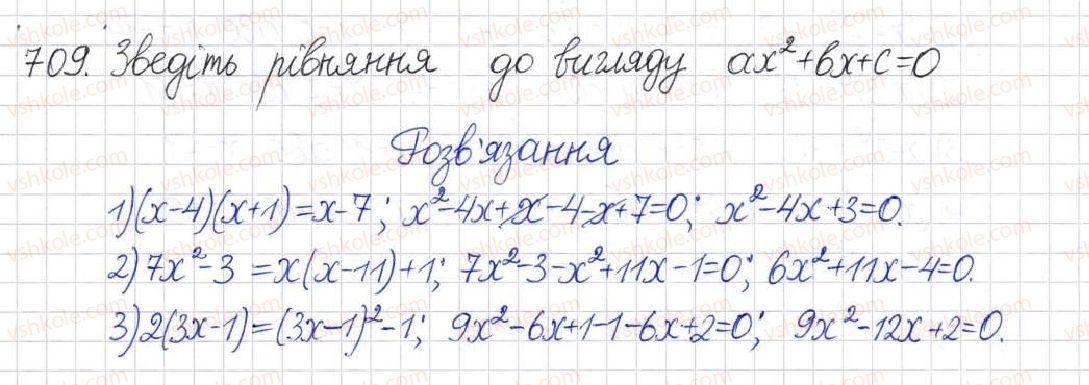 709. Зведіть рівняння до вигляду ax²+bx+c=0
Розв'язання
1)(x-4)(x+1)=x-7; x²-4x+x-4-x+7=0; x²-4x+3=0.
2)7x²-3=x(x-11)+1; 7x²-3-x²+11x-1=0; 6x²+11x-4=0.
3)2(3x-1)=(3x-1)²-1; 9x²-6x+1-1-6x+2=0; 9x²-12x+2=0.
vshkole.com